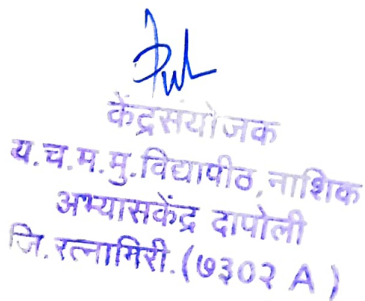 केंद्रसंयोजक
य.च.म.मु.विद्यापीठ,नाशिक
अभ्यासकेंद्र दापोली
जि.रत्नागिरी.(७३०२ A )